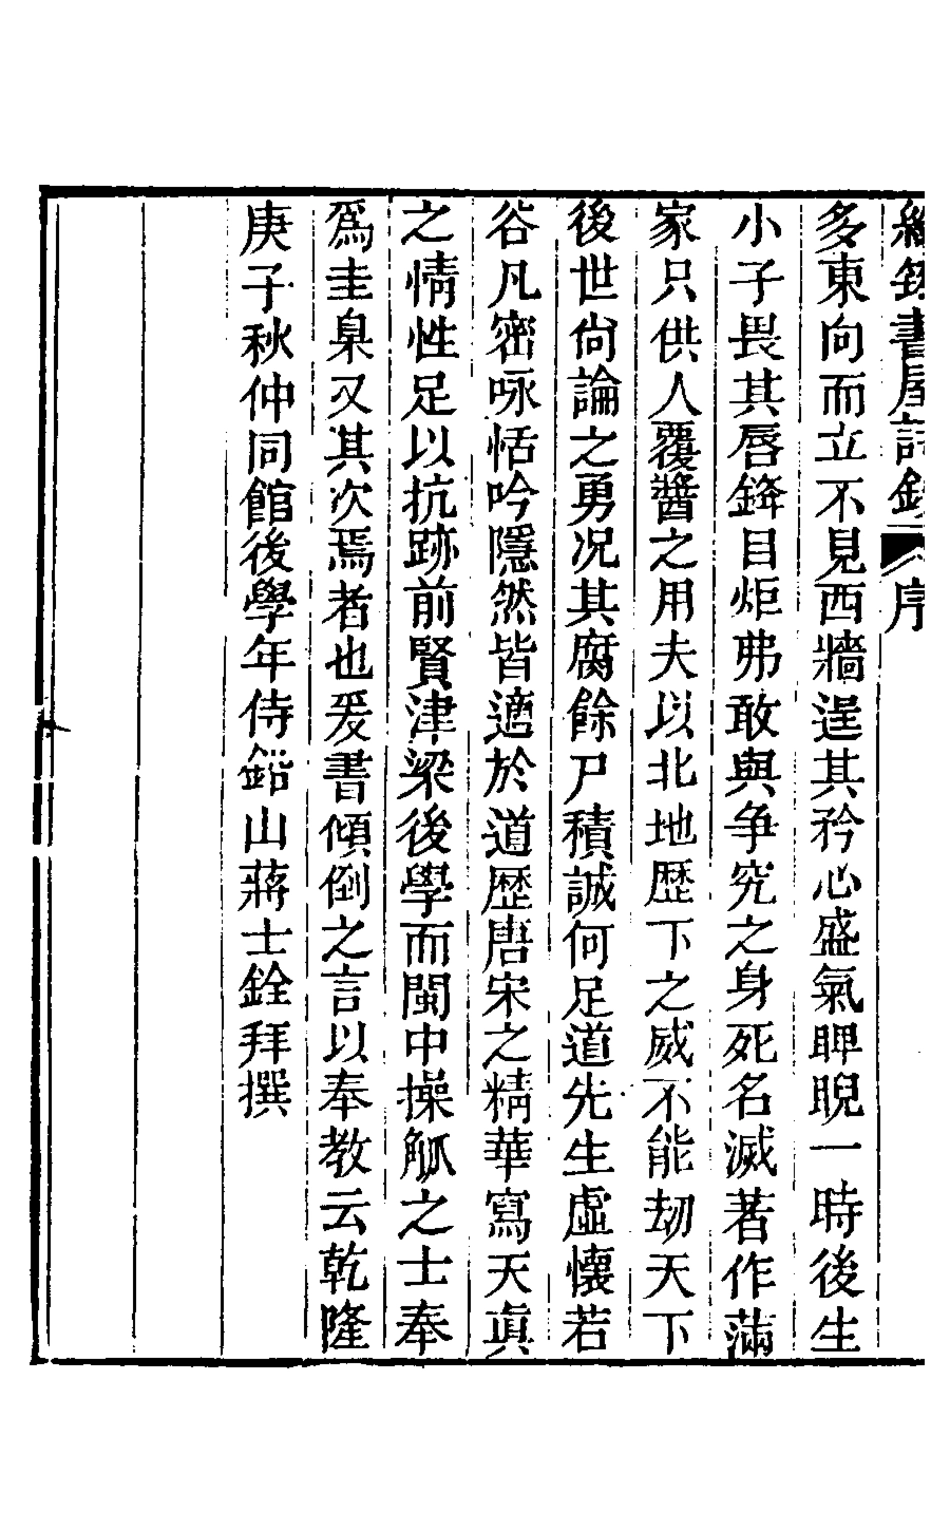 書屋詩鈔 序
多東向而立不見西牆逞其矜心盛氣睥睨一時後生
小子畏其唇鋒目炬弗敢與争究之身死名滅著作滿
家只供人覆醬之用夫以北地歴下之威不能刼天下
後世尙論之勇况其腐餘尸積誠何足道先生虛懷若
谷凡密咏恬吟隱然皆適於道歴唐宋之精華寫天眞
之情性足以抗跡前賢津梁後學而閩中操觚之士奉
爲圭臬又其次焉者也爰書傾倒之言以奉教云乾隆
庚子秋仲同館後學年侍鉛山蔣士銓拜撰